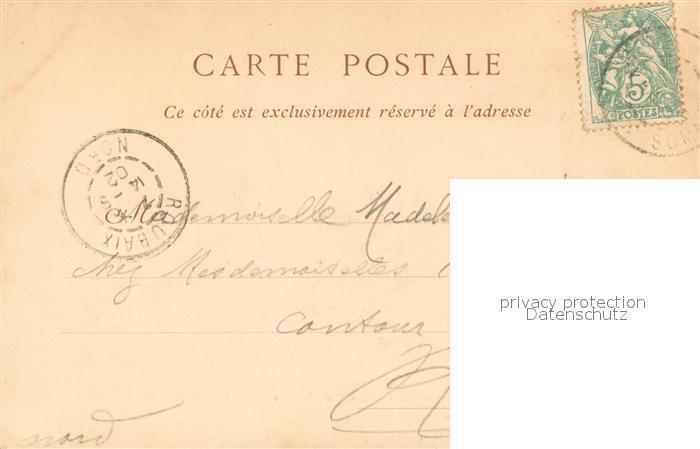 CARTE POSTALE
Ce côté est exclusivement réservé à l'adresse
5c
POSTES
SOM
ROUBAIX
NORD
02
Mademoiselle Madel
chez Mesdemoiselles
Contour
nord
privacy protection
Datenschutz